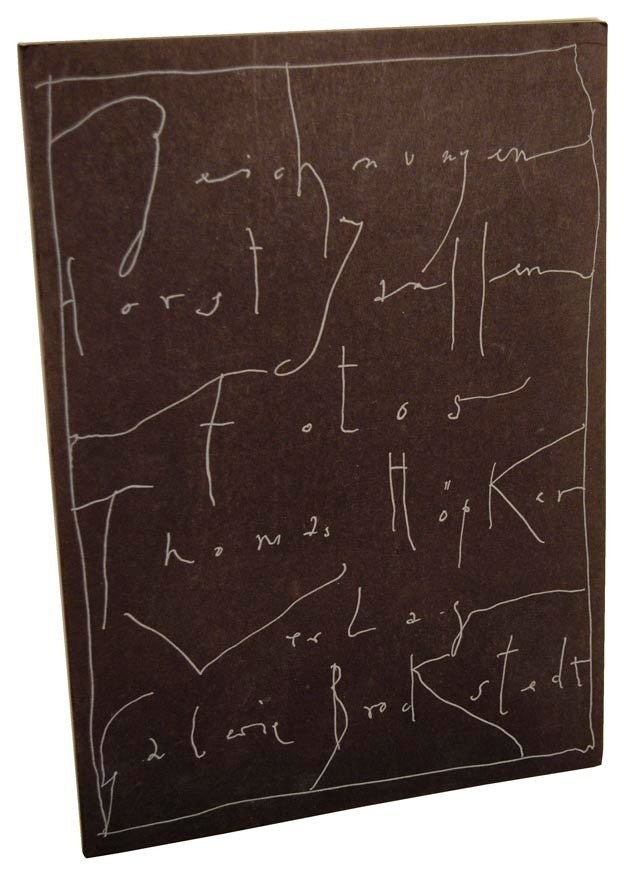 Zeichnungen
Horst Janssen
Fotos
Thomas Höpker
Verlag
Galerie Brockstedt